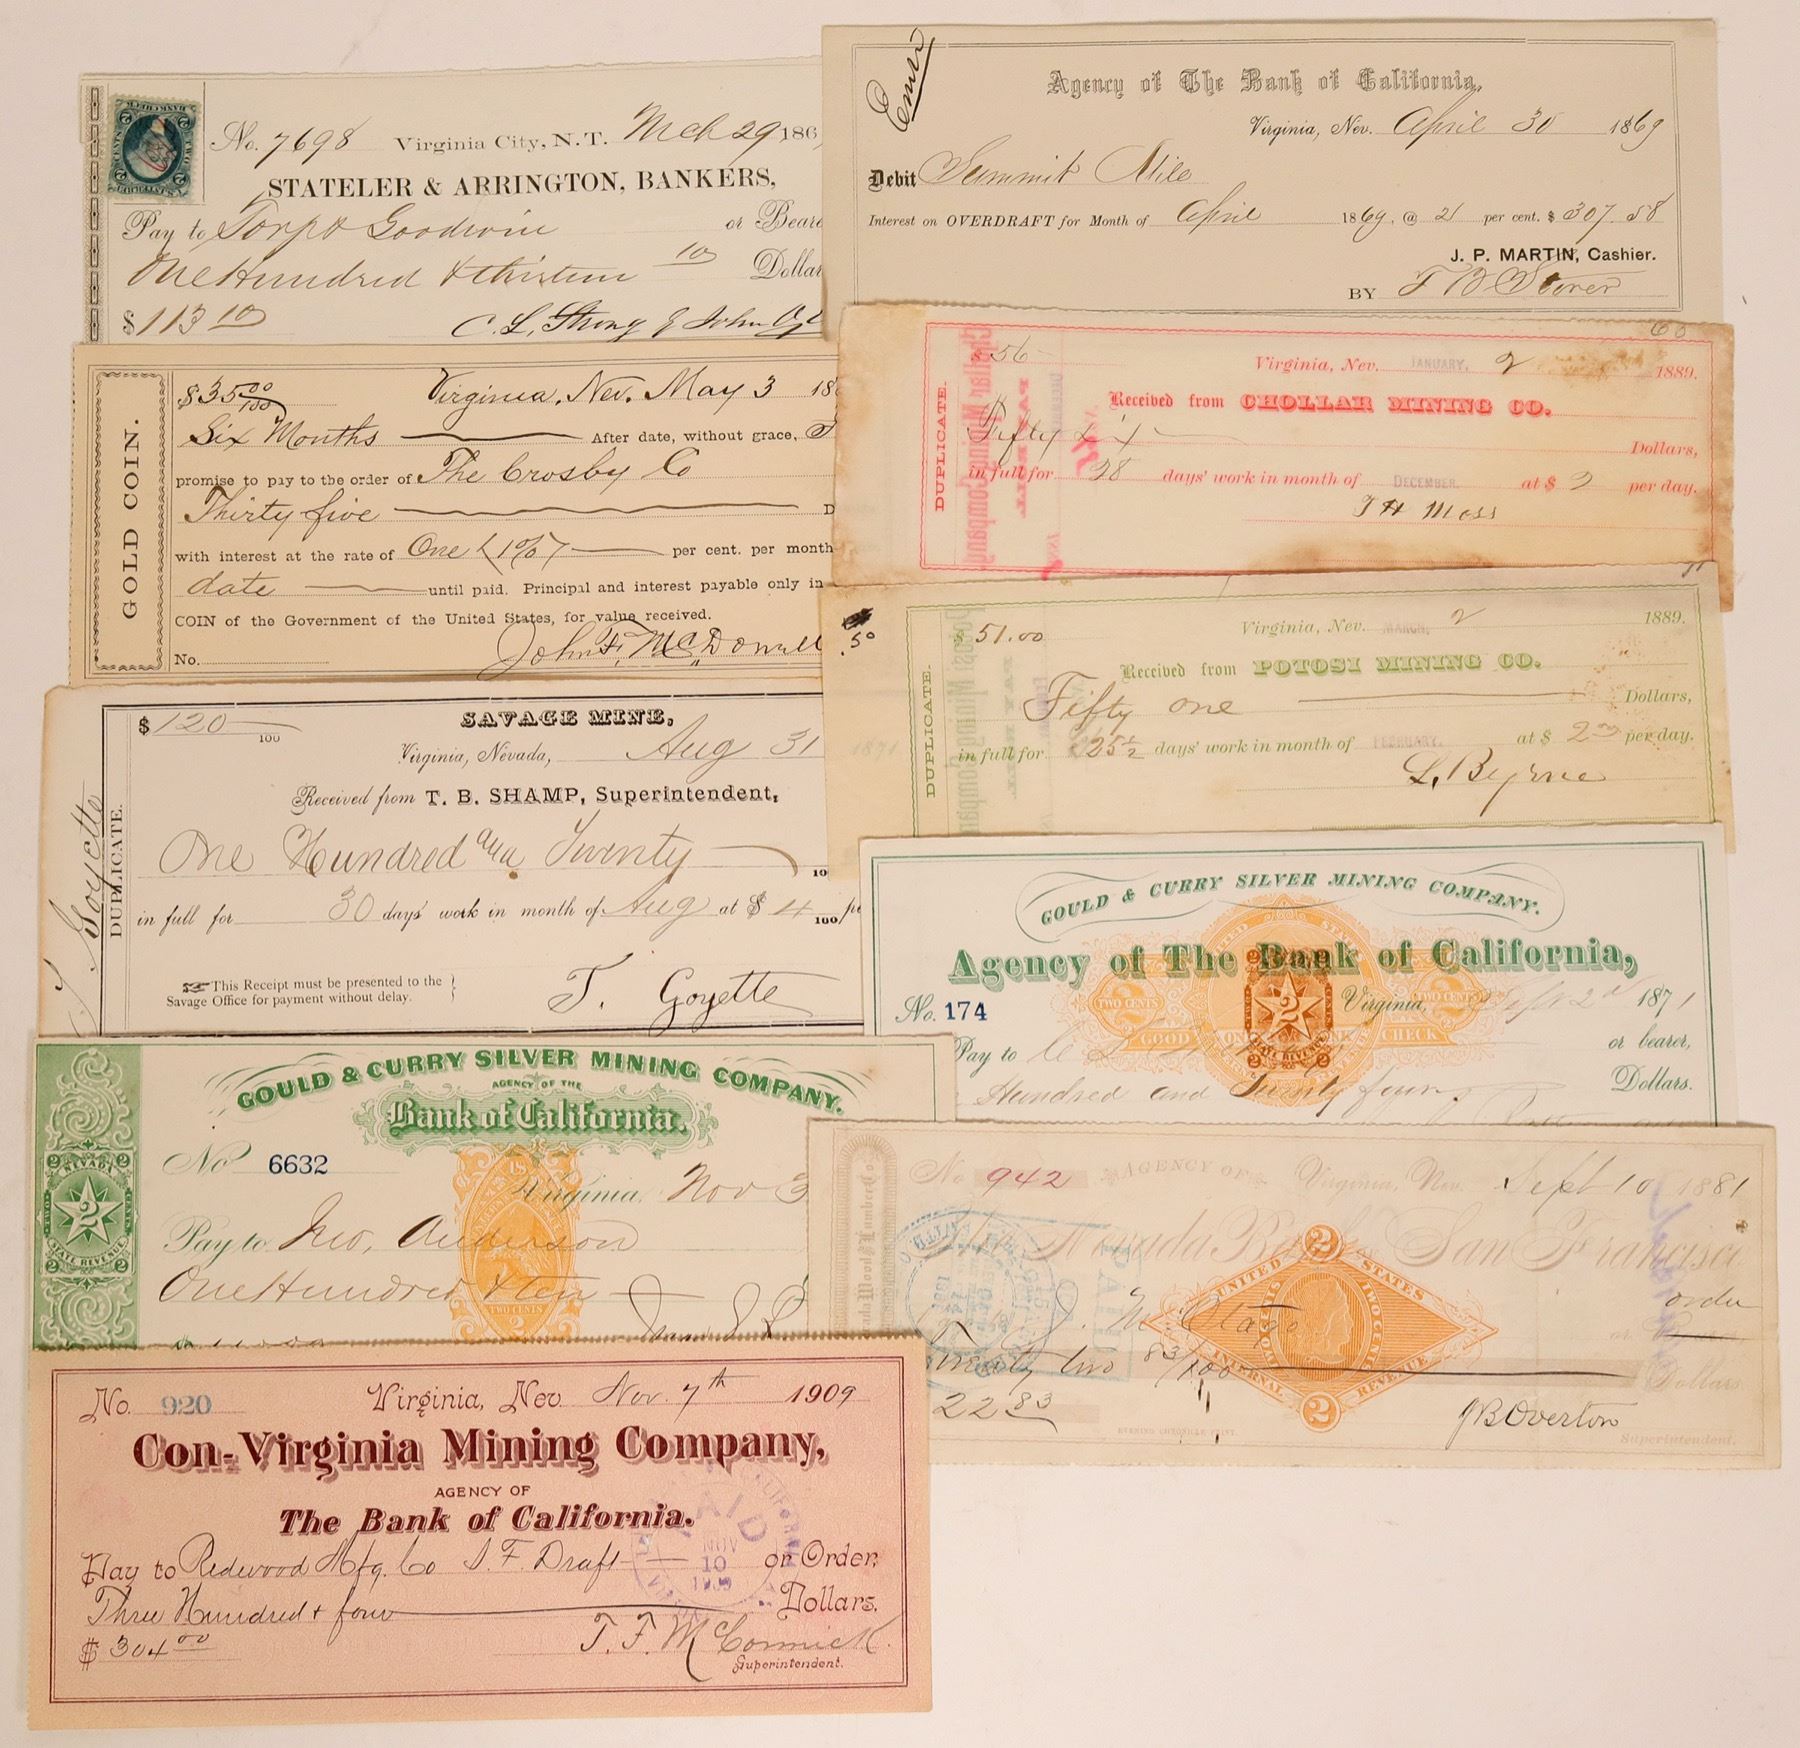 No. 7698 Virginia City, N.T. Mch 29 186
STATELER & ARRINGTON, BANKERS,
Pay to Goodwin or Beare
One Hundred & thirteen 10 Dollar
$ 113 10
C. L. Strong & John
Emri
Agency of The Bank of California,
Virginia, Nev. April 30 1869
Debit Summit Mile
Interest on OVERDRAFT for Month of April 1869, @ 2 per cent. $ 307.58
J. P. MARTIN, Cashier.
BY
GOLD COIN.
$35 00/100 Virginia, Nev. May 3 18
Six Months After date, without grace,
promise to pay to the order of The Crosby Co
Thirty five D
with interest at the rate of One (1%) per cent. per month
date until paid. Principal and interest payable only in
COIN of the Government of the United States, for value received.
No. John F. McDonell
DUPLICATE.
$ 56
Virginia, Nev. JANUARY, 2 1889.
Received from CHOLLAR MINING CO.
Fifty Dollars,
in full for 28 days' work in month of DECEMBER. at $ 2 per day.
Moss
DUPLICATE.
.50
$ 51.00
Virginia, Nev. MARCH, 2 1889.
Received from POTOSI MINING CO.
Fifty one Dollars,
in full for 25 1/2 days' work in month of FEBRUARY. at $ 2 00 per day.
L. Byrne
Goyette
DUPLICATE.
$ 120 /100
SAVAGE MINE,
Virginia, Nevada, Aug 31
Received from T. B. SHAMP, Superintendent,
One Hundred and Twenty 10
in full for 30 days' work in month of Aug at $ 4 100/pe
This Receipt must be presented to the
Savage Office for payment without delay.
T. Goyette
GOULD & CURRY SILVER MINING COMPANY.
Agency of The Bank of California,
No. 174 Virginia, Sept 2d 1871
Pay to or bearer,
Hundred and Twenty four Dollars.
UNITED STATES
TWO CENTS
GOOD ON CHECK
2
STATE REVENUE
GOULD & CURRY SILVER MINING COMPANY.
AGENCY OF THE
Bank of California.
No 6632 Virginia, Nov 3
Pay to Jno. Anderson
One Hundred & ten
NEVADA
2
STATE REVENUE
TWO CENTS
No 942 AGENCY OF Virginia, Nev. Sept 10 1881
The Nevada Bank of San Francisco
J. order
Twenty two 83/100 Dollars
22 83
J B Overton
Superintendent.
EVENING CHRONICLE PRINT.
UNITED STATES
TWO CENTS
INTERNAL REVENUE
2
PAID
No. 920 Virginia, Nev. Nov. 7th 1909
Con-Virginia Mining Company,
AGENCY OF
The Bank of California.
Pay to Redwood Mfg. Co S. F. Draft or Order,
Three Hundred & four Dollars.
$ 304 00
T. F. McCormick
Superintendent.
PAID
NOV
10
1909